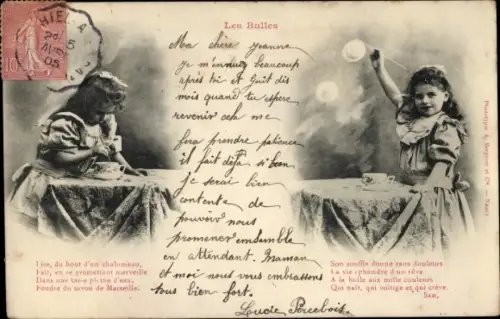 Les Bulles
10
05
Ma chère Jeanne
je m'ennuie beaucoup
après toi et
dis
moi quand tu espere
revenir cela me
fera prendre patience
il fait déjà si bon
je serai bien
contente de
pouvoir nous
promener ensemble
en attendant. Maman
et moi nous vous embrassons
tous bien fort.
Lucie
Lise, du bout d'un chalumeau,
Fait, en se promettant merveille
Dans une tasse pleine d'eau,
Fondre du savon de Marseille.
Son souffle donne sans douleurs
La vie éphémère d'un rêve
A la bulle aux mille couleurs
Qui naît, qui voltige et qui crève.
Phototypie A. Bergeret et Cie - Nancy